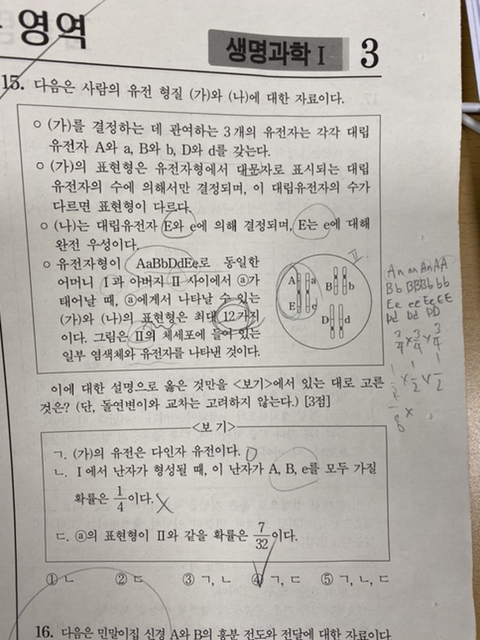 영역
생명과학 I 3
15. 다음은 사람의 유전 형질 (가)와 (나)에 대한 자료이다.
○ (가)를 결정하는 데 관여하는 3개의 유전자는 각각 대립
유전자 A와 a, B와 b, D와 d를 갖는다.
○ (가)의 표현형은 유전자형에서 대문자로 표시되는 대립
유전자의 수에 의해서만 결정되며, 이 대립유전자의 수가
다르면 표현형이 다르다.
○ (나)는 대립유전자 E와 e에 의해 결정되며, E는 e에 대해
완전 우성이다.
○ 유전자형이 AaBbDdEe로 동일한
어머니 I과 아버지 II 사이에서 ⓐ가
태어날 때, ⓐ에게서 나타날 수 있는
(가)와 (나)의 표현형은 최대 12가지
이다. 그림은 II의 체세포에 들어 있는
일부 염색체와 유전자를 나타낸 것이다.
II
A a B b
E e D d
Aa aa AA
Ee ee Ee EE
DD
3/4 × 3/4 × 3/4
1/2 × 1/2 × 1/2
1/8 ×
이에 대한 설명으로 옳은 것만을 <보기>에서 있는 대로 고른
것은? (단, 돌연변이와 교차는 고려하지 않는다.) [3점]
<보 기>
ㄱ. (가)의 유전은 다인자 유전이다. O
ㄴ. I에서 난자가 형성될 때, 이 난자가 A, B, e를 모두 가질
확률은 1/4이다. X
ㄷ. ⓐ의 표현형이 II와 같을 확률은 7/32이다.
① ㄴ ② ㄷ ③ ㄱ, ㄴ ④ ㄱ, ㄷ ⑤ ㄱ, ㄴ, ㄷ
16. 다음은 민말이집 신경 A와 B의 흥분 전도와 전달에 대한 자료이다